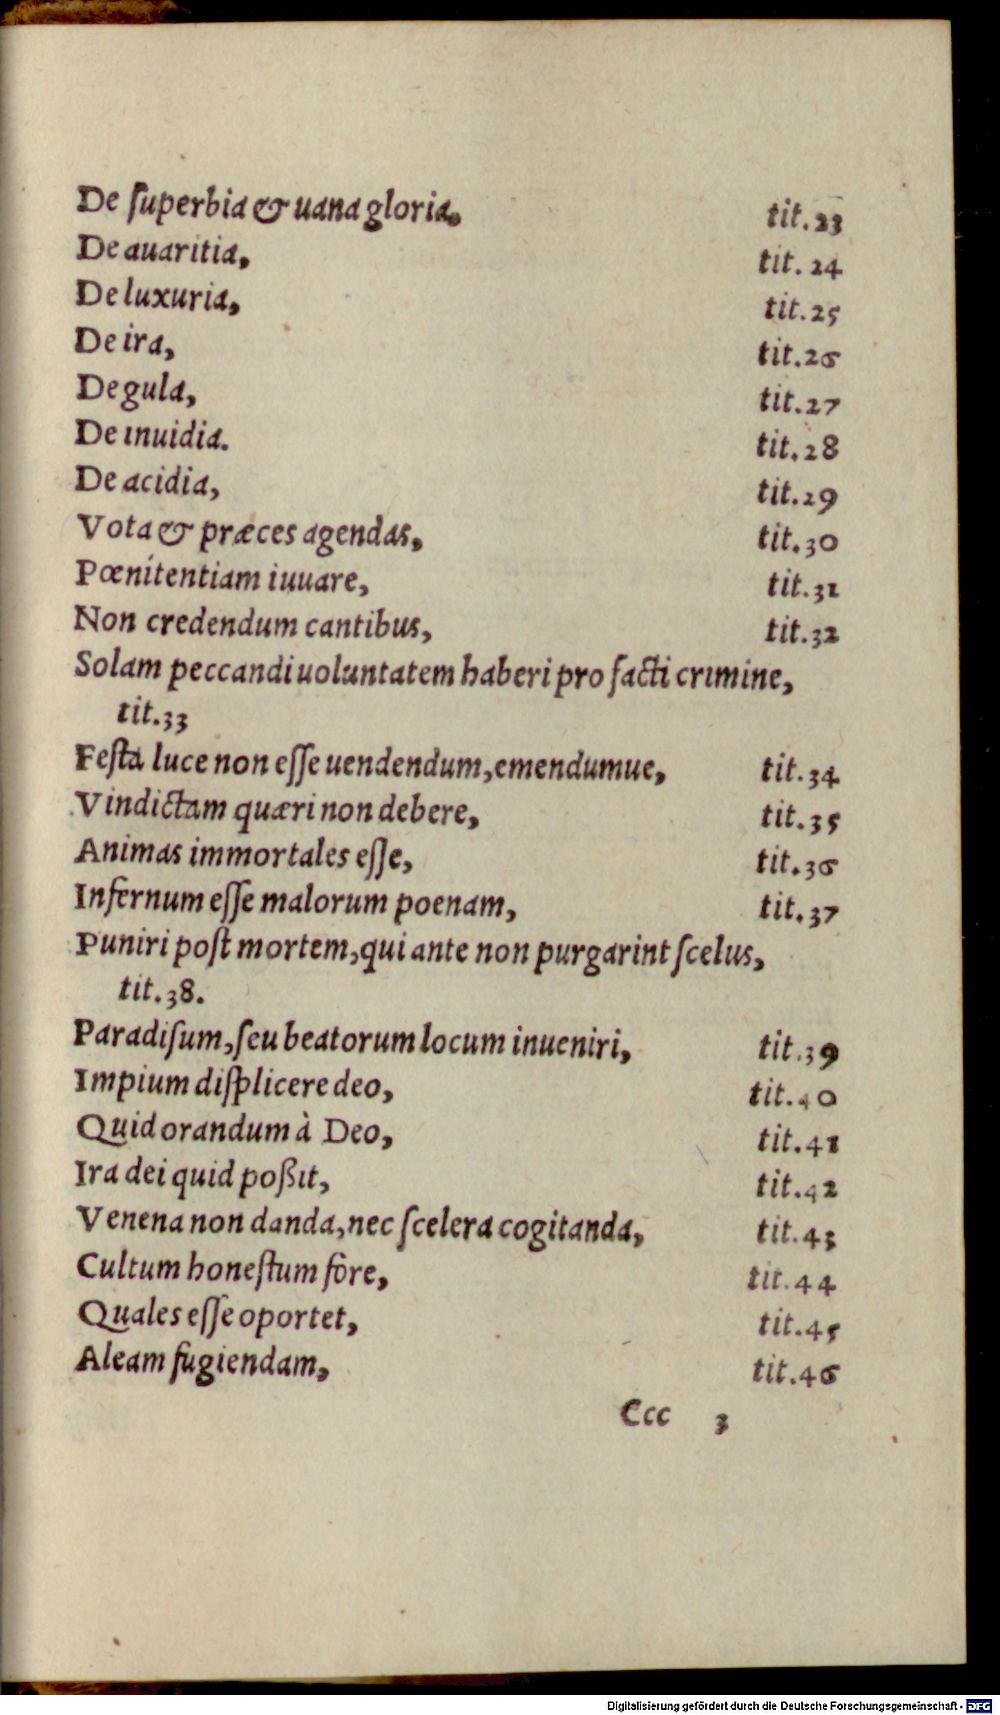 De ſuperbia & uana gloria, tit.23
De auaritia, tit. 24
De luxuria, tit.25
De ira, tit.26
De gula, tit.27
De inuidia. tit.28
De acidia, tit.29
Vota & præces agendas, tit.30
Pœnitentiam iuuare, tit.31
Non credendum cantibus, tit.32
Solam peccandi uoluntatem haberi pro facti crimine,
tit.33
Feſta luce non eſſe uendendum,emendumue, tit.34
Vindictam quæri non debere, tit.35
Animas immortales eſſe, tit.36
Infernum eſſe malorum poenam, tit.37
Puniri poſt mortem,qui ante non purgarint ſcelus,
tit.38.
Paradiſum,ſeu beatorum locum inueniri, tit.39
Impium diſplicere deo, tit.40
Quid orandum à Deo, tit.41
Ira dei quid poßit, tit.42
Venena non danda,nec ſcelera cogitanda, tit.43
Cultum honeſtum fore, tit.44
Quales eſſe oportet, tit.45
Aleam fugiendam, tit.46
Ccc 3
Digitalisierung gefördert durch die Deutsche Forschungsgemeinschaft - DFG